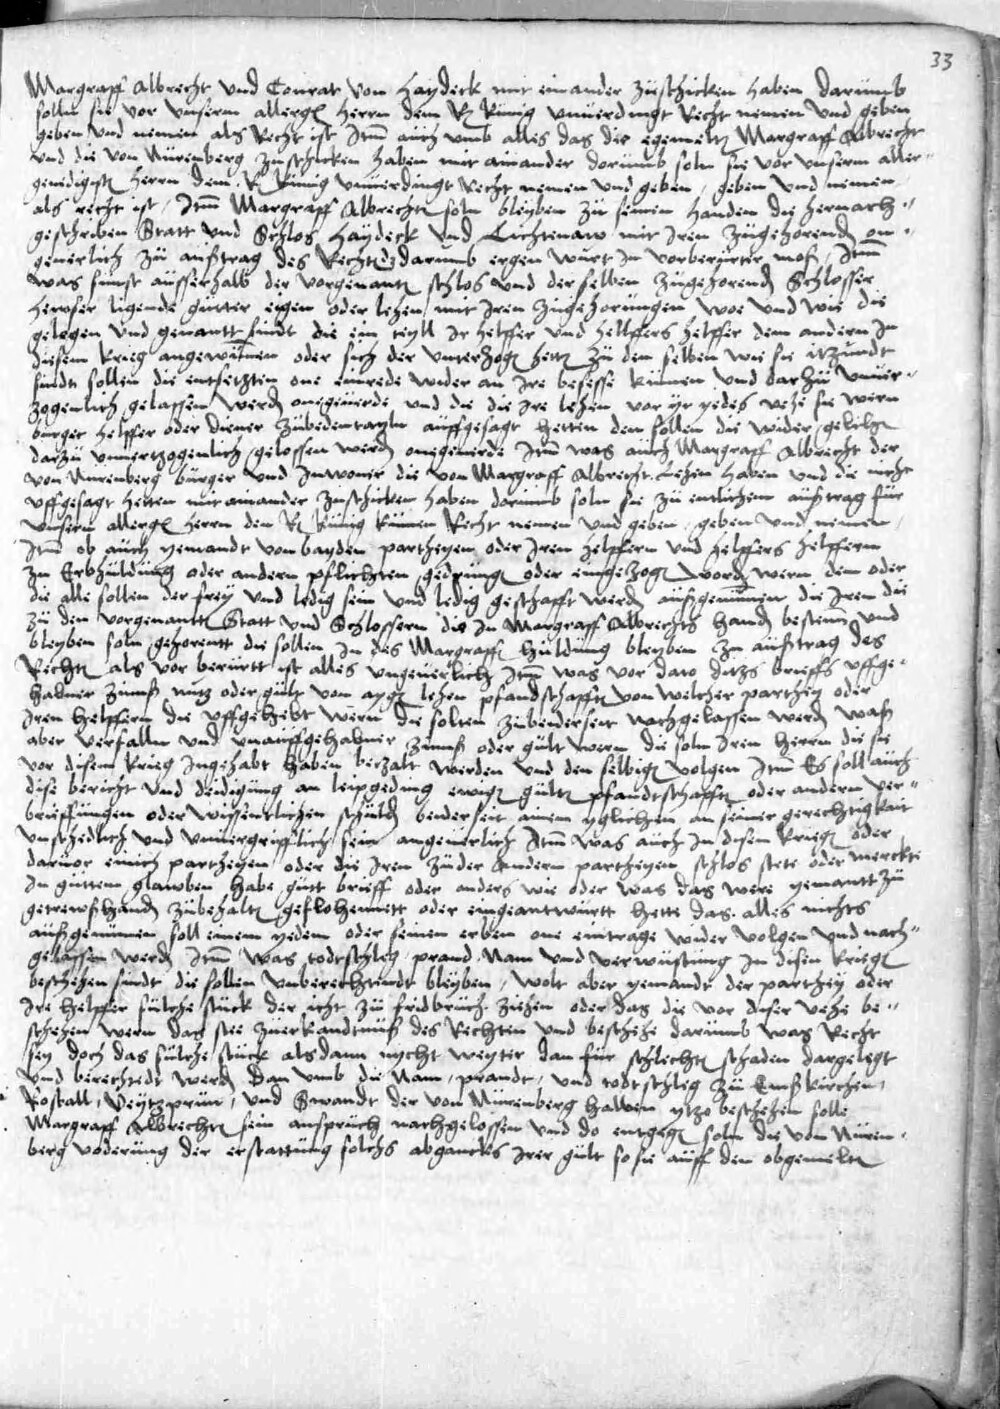 33
Margraff Albrecht vnd Conrat von Haydeck mit einander zuschicken haben darumb
solln sie vor vnserm allergn Herrn dem R Kunig vnuerdingt Recht nemen vnd geben
geben vnd nemen als Recht ist Itm auch vmb alles das der egemelt Margraff Albrecht
vnd die von Nurenberg zuschicken haben mit ainander dorumb soln sie vor vnserm aller-
genedigsten Herrn dem R Kunig vnuerdingt Recht nemen vnd geben, geben vnd nemen,
als recht ist, Itm Margraff Albrechten soln bleyben zu seinen handen die hernach-
geschriben Statt vnd Schlos Haydeck vnd Lichtenaw mit Iren zugehorenden on-
geuerlich zu außtrag des Rechten darumb ergen wurt In vorberurter moß, Itm
was sunst ausserhalb der vorgenanten schlos vnd derselben zugehorend Schlosser
Hewser ligende gutter eigen oder lehen mit Iren zugehorungen woe vnd wie die
gelegen vnd genantt sindt die ein teyll Ir helffer vnd helffers helffer dem andern In
disem krieg angewunnen oder sich der vnterzogen hett zu den selben wie sie itzundt
sindt sollen die entsetzten one einrede wider an Ire besesse kumen vnd darzu vnuer-
zogenlich gelassen werden onegeuerde vnd die die Ire lehen vor yr yedes vehe sie wern
burger helffer oder diener zubedentayln auffgesagt hetten den sollen die wider gelihen
darzu vnuertzogenlich gelossen werden onegeuerde Itm was auch Margraff Albrecht der
von Nurenberg burger vnd Inwoner die von Margraff Albrecht Lehen haben vnd die nicht
vffgesagt hetten mit ainander zuschicken haben dorumb soln sie zu entlichem außtrag fur
vnsern allergn Herrn den R Kunig kumen Recht nemen vnd geben, geben vnd nemen,
Itm ob auch yemandt von bayden partheyen oder Iren helffern vnd helffers helffern
zu Erbhuldung oder andern pflichten gedrungen oder eingetzogen worden wern dem oder
die alle sollen der frey vnd ledig sein vnd ledig geschafft werden außgenumen die Iren die
zu den vorgenantt Statt vnd Schlossern die In Margraff Albrechts handen bestenn vnd
bleyben soln gehorentt die sollen In des Margraffen huldung bleyben zu außtrag des
Rechten als vor berurtt ist alles vngeuerlich Itm was vor dato ditzs brieffs vffge-
habner zinnß nutz oder gult von aygen lehen pfandschafft von welcher parthey oder
Iren helffern die vffgehebt wern die solten zubenderseit nachgelassen werden waß
aber verfalln vnd vnauffgehabner zinnß oder gult wern die soln Iren herrn die sie
vor disem krieg Ingehabt haben bezalt werden vnd den selbigen volgen Itm Es soll auch
dise bericht vnd deidigung an leipgeding ewigen gulten pfandtschafft oder andern ver-
brieffungen oder wissentlichen schulden benderseit ainem yglichen an seiner gerechtigkait
vnschedlich vnd vnuergriffenlich sein vngeuerlich Itm was auch In disem krieg oder
daruor einich partheyen oder die Iren zu der andern partheyen schlos stete oder merckte
In guttem glawben habe gutt brieff oder anders wie oder was das were yemantt zu
getrewßhanden zubehalten geflohennett oder eingeantwurtt hette das alles nichts
außgenumen soll einem yedem oder seinen erben one eintrage wider volgen vnd nach-
gelassen werden Itm was todtschleg prand Nam vnd verwustung In disem krieg
beschehen sindt die sollen vnberechtendt bleyben, wolt aber yemandt der parthey oder
Ire helffer sulche stuck der icht zu fridbruch ziehen oder das die vor diser vehe be-
schehen wern das stee zuerkandtnuß des Rechten vnd beschehe darumb was Recht
sey doch das sulche stuck alsdann nycht weyter dan fur schlechten schaden dargelegt
vnd berechtedt werden dan vmb die Nam, prandt, vnd todtschleg zu Emßkirchen,
Rostall, Veytzprun, vnd Swandt der von Nurenberg halben ytzo beschehen solle
Margraff Albrechten sein anspruch nachgelossen vnd do entgegen soln die von Nuren-
berg voderung der erstattung solchs abgancks Irer gult so sie auff den obgemelten